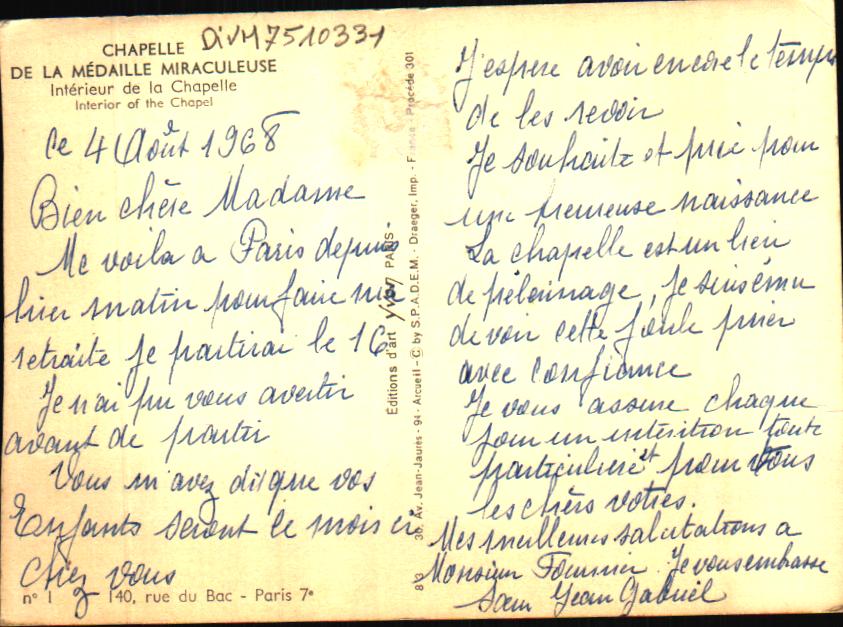 DiVM7510331
CHAPELLE
DE LA MÉDAILLE MIRACULEUSE
Intérieur de la Chapelle
Interior of the Chapel
Le 4 Août 1968
Bien chère Madame
Me voila a Paris depuis
hier matin pour faire ma
retraite je partirai le 16
Je n'ai pu vous avertir
avant de partir
Vous m'avez dit que vos
Enfants seront ce mois ci
chez vous
n° 1 140, rue du Bac - Paris 7e
Éditions d'art YVON PARIS -
8/3 36, Av. Jean-Jaurès - 94 - Arcueil - © by S.P.A.D.E.M. - Draeger, Imp. - France - Procédé 301
J'espere avoir encore le temps
de les revoir
Je souhaite et prie pour
une heureuse naissance
La chapelle est un lieu
de pélerinage, je suis ému
de voir cette foule prier
avec confiance
Je vous assure chaque
jour un intention toute
particuliere et pour vous
les chers votres.
Mes meilleures salutations a
Monsieur Fournier. Je vous embrasse
Sœur Jean Gabriel